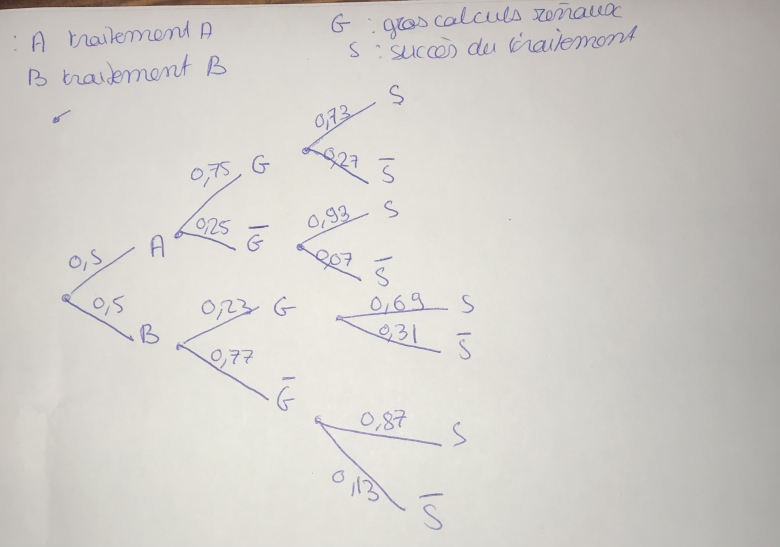 : A traitement A
G : gros calculs rénaux
B traitement B
S : succès du traitement
0,73 S
0,75 G
0,27 S̅
0,5 A
0,25 G̅
0,93 S
0,07 S̅
0,5 B
0,23 G
0,69 S
0,31 S̅
0,77 G̅
0,87 S
0,13 S̅